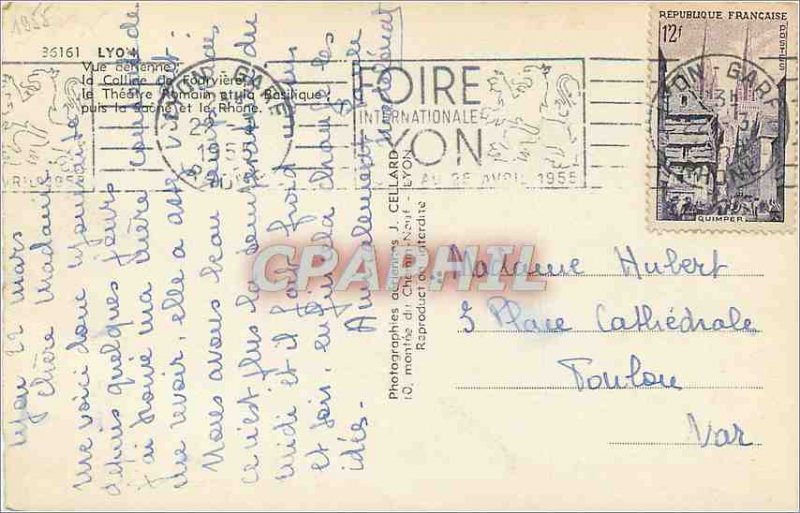 1955
36161 LYON
Vue aérienne
la Colline de Fourvière
le Théâtre Romain et la Basilique
puis la Saône et le Rhône.
LYON - GARE
RHONE
FOIRE
INTERNATIONALE
LYON
AU 25 AVRIL 1955
AVRIL 1955
RÉPUBLIQUE FRANÇAISE
12F
POSTES
QUIMPER
LYON - GARE
RHONE
Lyon 22 mars
Chère Madame
me voici donc Lyonnaise
depuis quelques jours
j'ai trouvé ma mère contente de
me revoir, elle a
Nous avons beau
ce n'est plus la du
midi et il fait froid
et soir, enfin cela change les
idées.
Amicalement à
Photographies aériennes J. CELLARD
10, montée du Chemin-Neuf - LYON
Reproduction interdite
Madame Hubert
5 Place Cathédrale
Toulon
Var
CPAPHIL